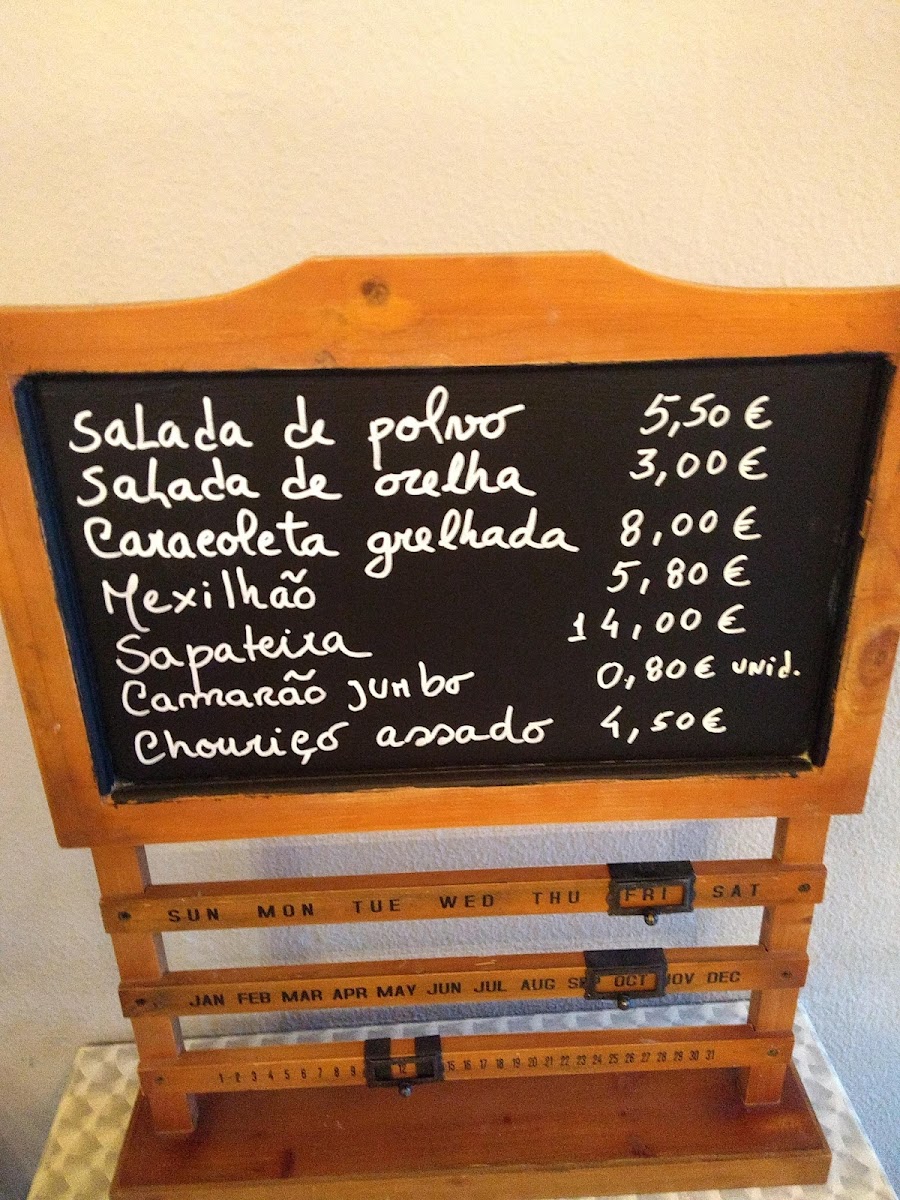 Salada de polvo 5,50 €
Salada de orelha 3,00 €
Caracoleta grelhada 8,00 €
Mexilhão 5,80 €
Sapateira 14,00 €
Camarão jumbo 0,80 € unid.
Chouriço assado 4,50 €
SUN MON TUE WED THU FRI SAT
JAN FEB MAR APR MAY JUN JUL AUG SEP OCT NOV DEC
1 2 3 4 5 6 7 8 9 12 15 16 17 18 19 20 21 22 23 24 25 26 27 28 29 30 31